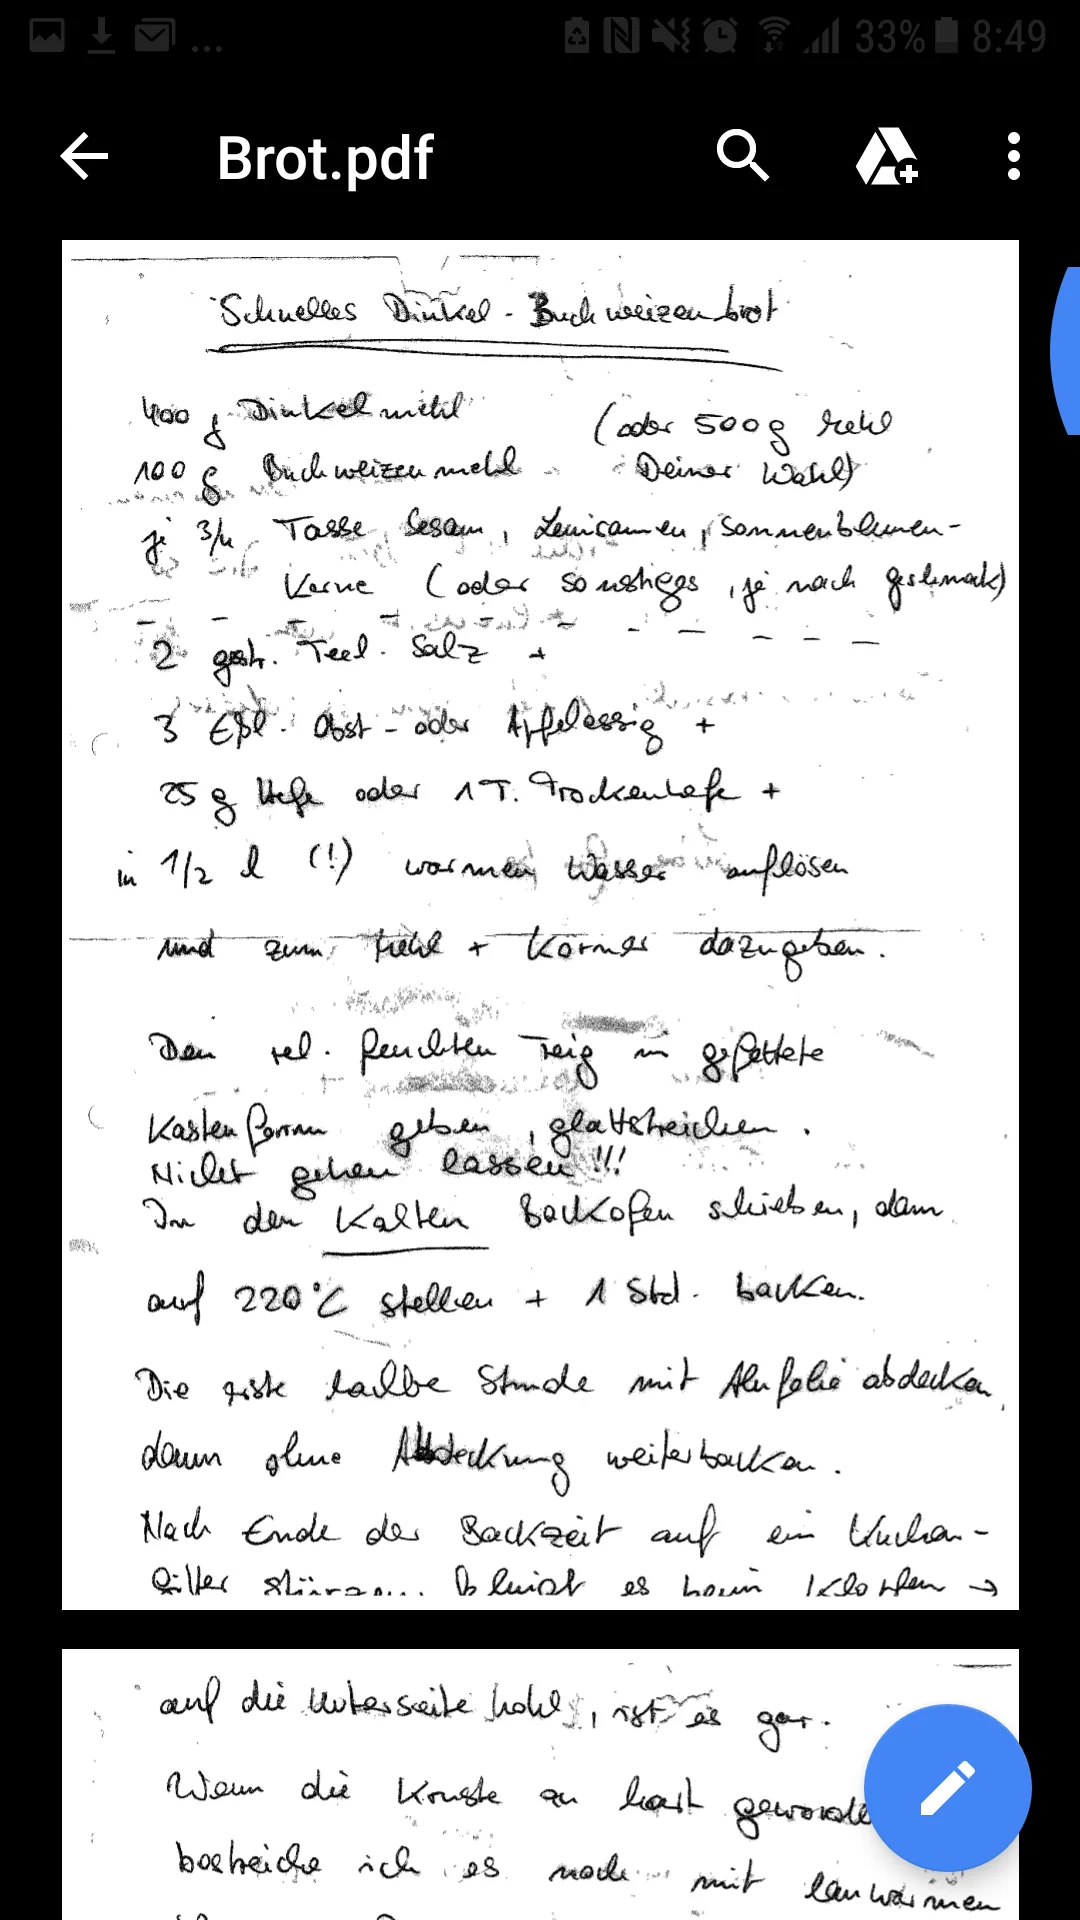 ... 33% 8:49
Brot.pdf
Schnelles Dinkel-Buchweizenbrot
400 g Dinkelmehl (oder 500g Mehl
100 g Buchweizenmehl Deiner Wahl)
je 3/4 Tasse Sesam, Leinsamen, Sonnenblumen-
Kerne (oder sonstiges, je nach Geschmack)
2 gestr. Teel. Salz +
3 Eßl. Obst- oder Apfelessig +
25 g Hefe oder 1 T. Trockenhefe +
in 1/2 l (!) warmen Wasser auflösen
und zum Mehl + Körner dazugeben.
Den rel. feuchten Teig in gefettete
Kastenform geben, glattstreichen.
Nicht gehen lassen!!!
In den Kalten Backofen schieben, dann
auf 220°C stellen + 1 Std. backen.
Die erste halbe Stunde mit Alufolie abdecken,
dann ohne Abdeckung weiterbacken.
Nach Ende der Backzeit auf ein Kuchen-
gitter stürzen... klingt es beim Klopfen →
auf die Unterseite hohl, ist es gar.
Wenn die Kruste zu hart geworde
bestreiche ich es noch mit lauwarmen